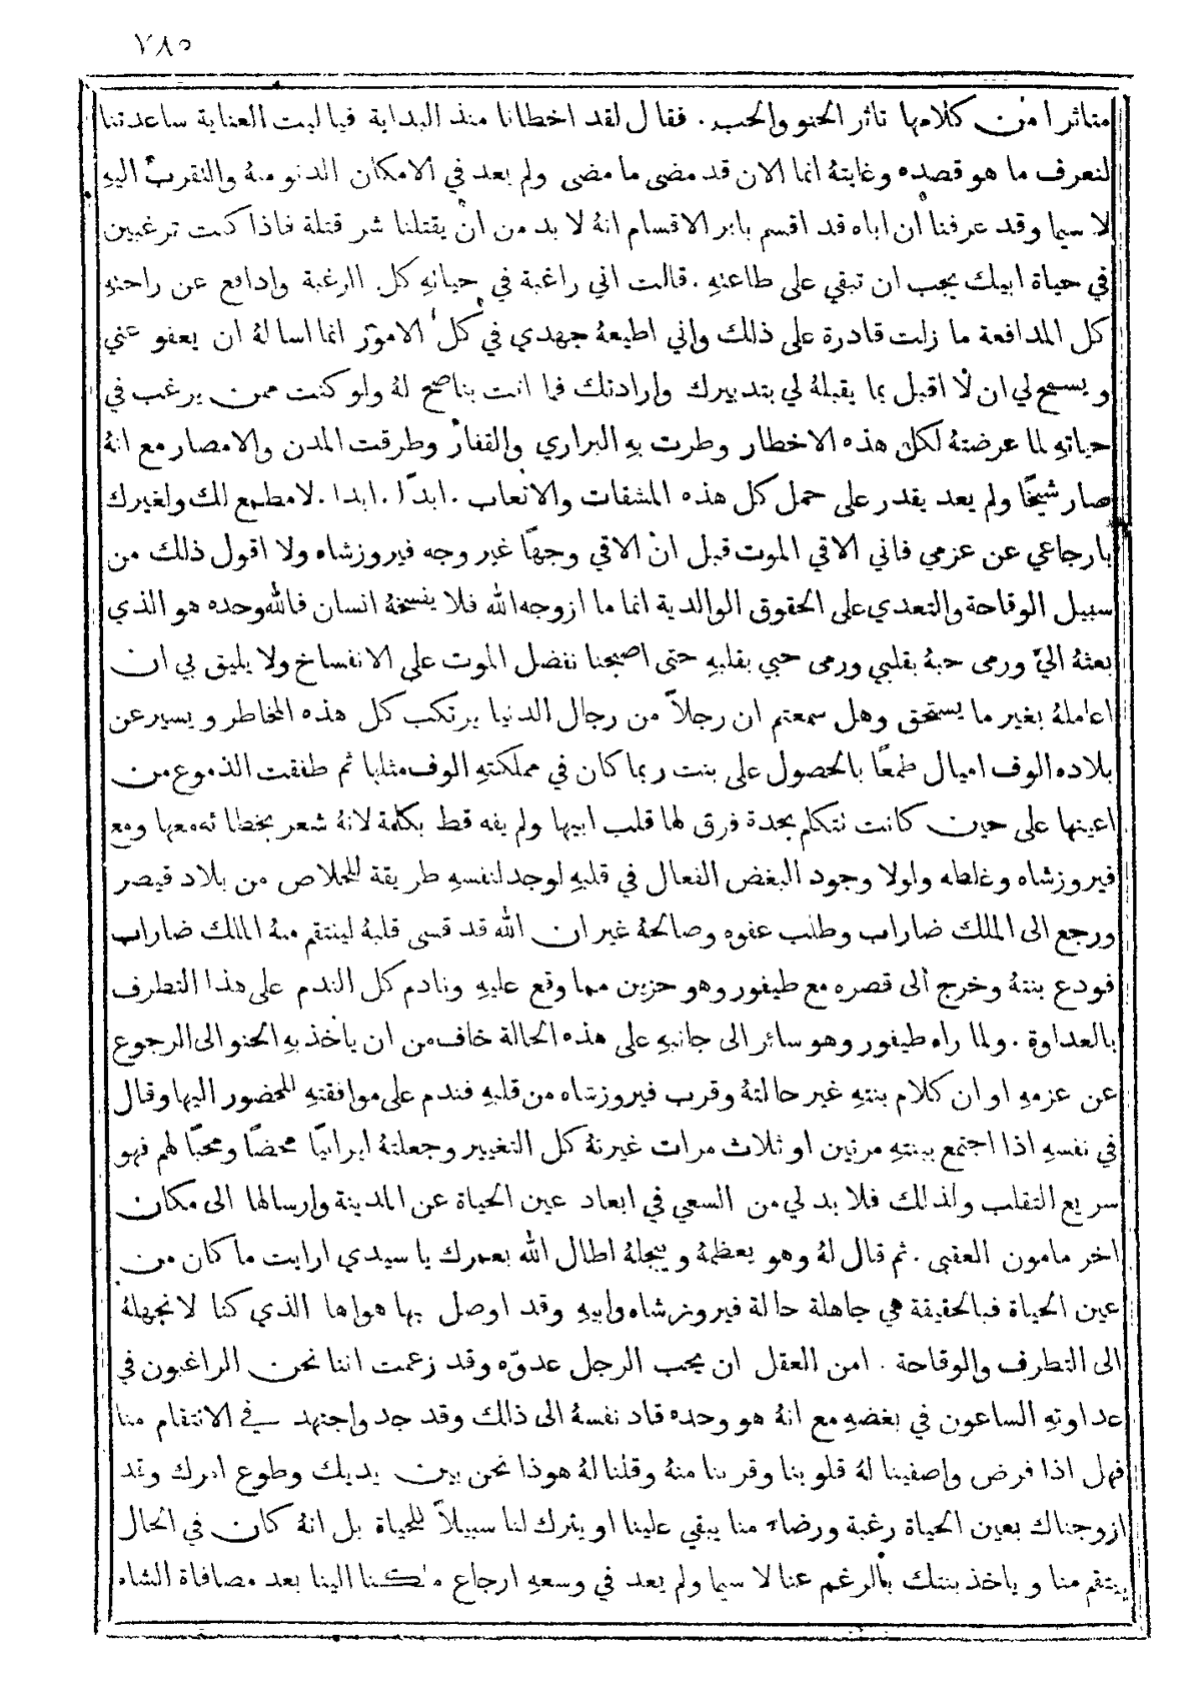 ٧٨٥
متاثرا من كلامها تاثر الحنو والحب. فقال لقد اخطانا منذ البداية فيا ليت العناية ساعدتنا
لنعرف ما هو قصده وغايتهُ انما الان قد مضى ما مضى ولم بعد في الامكان الدنو منهُ والتقرب اليهِ
لا سيما وقد عرفنا ان اباه قد اقسم بابر الاقسام انهُ لا بد من ان يقتلنا شر قتلة فاذا كنت ترغبين
في حياة ابيك يجب ان تبقي على طاعتهِ. قالت اني راغبة في حياتهِ كل الرغبة وادافع عن راحتهِ
كل المدافعة ما زلت قادرة على ذلك واني اطيعهُ جهدي في كل الامور انما اسالهُ ان يعفو عني
ويسمح لي ان لا اقبل بما يقبلهُ لي بتدبيرك وارادتك فما انت بناصح لهُ ولو كنت ممن يرغب في
حياتهِ لما عرضتهُ لكل هذه الاخطار وطرت بهِ البراري والقفار وطرقت المدن والامصار مع انهُ
صار شيخًا ولم يعد يقدر على حمل كل هذه المشقات والاتعاب. ابدًا. ابدا. لا مطمع لك ولغيرك
بارجاعي عن عزمي فاني الاقي الموت قبل ان الاقي وجهًا غير وجه فيروزشاه ولا اقول ذلك من
سبيل الوقاحة والتعدي على الحقوق الوالدية انما ما ازوجه الله فلا يفسخهُ انسان فالله وحده هو الذي
بعثهُ اليّ ورمى حبهُ بقلبي ورمى حبي بقلبهِ حتى اصبحنا نفضل الموت على الانفساخ ولا يليق بي ان
اعاملهُ بغير ما يستحق وهل سمعتم ان رجلاً من رجال الدنيا يرتكب كل هذه المخاطر ويسير عن
بلاده الوف اميال طمعًا بالحصول على بنت ربما كان في مملكتهِ الوف مثلها ثم طفقت الدموع من
اعينها على حين كانت تتكلم بحدة فرق لها قلب ابيها ولم يفه قط بكلمة لانهُ شعر بخطائه معها ومع
فيروزشاه وغلطه ولولا وجود البغض الفعال في قلبهِ لوجد لنفسهِ طريقة للخلاص من بلاد قيصر
ورجع الى الملك ضاراب وطلب عفوه وصالحهُ غير ان الله قد قسى قلبهُ لينتقم منهُ الملك ضاراب
فودع بنتهُ وخرج الى قصره مع طيفور وهو حزين مما وقع عليهِ ونادم كل الندم على هذا التطرف
بالعداوة. ولما راه طيفور وهو سائر الى جانبهِ على هذه الحالة خاف من ان ياخذ بهِ الحنو الى الرجوع
عن عزمهِ او ان كلام بنتهِ غير حالتهُ وقرب فيروزشاه من قلبهِ فندم على موافقتهِ للحضور اليها وقال
في نفسهِ اذا اجتمع ببنتهِ مرتين او ثلاث مرات غيرتهُ كل التغيير وجعلتهُ ايرانيًا محضًا ومحبًا لهم فهو
سريع التقلب ولذلك فلا بد لي من السعي في ابعاد عين الحياة عن المدينة وارسالها الى مكان
اخر مامون العقبى. ثم قال لهُ وهو يعظمهُ ويبجلهُ اطال الله بعمرك يا سيدي ارايت ما كان من
عين الحياة فبالحقيقة هي جاهلة حالة فيروزشاه وابيهِ وقد اوصل بها هواها الذي كنا لا نجهلهُ
الى التطرف والوقاحة. امن العقل ان يحب الرجل عدوّه وقد زعمت اننا نحن الراغبون في
عداوتهِ الساعون في بغضهِ مع انهُ هو وحده قاد نفسهُ الى ذلك وقد جد واجتهد في الانتقام منا
فهل اذا فرض واصفينا لهُ قلوبنا وقربنا منهُ وقلنا لهُ هوذا نحن بين يديك وطوع امرك وقد
ازوجناك بعين الحياة رغبة ورضاء منا يبقي علينا او يترك لنا سبيلاً للحياة بل انهُ كان في الحال
ينتقم منا وياخذ بنتك بالرغم عنا لا سيما ولم يعد في وسعهِ ارجاع ملكنا الينا بعد مصافاة الشاه